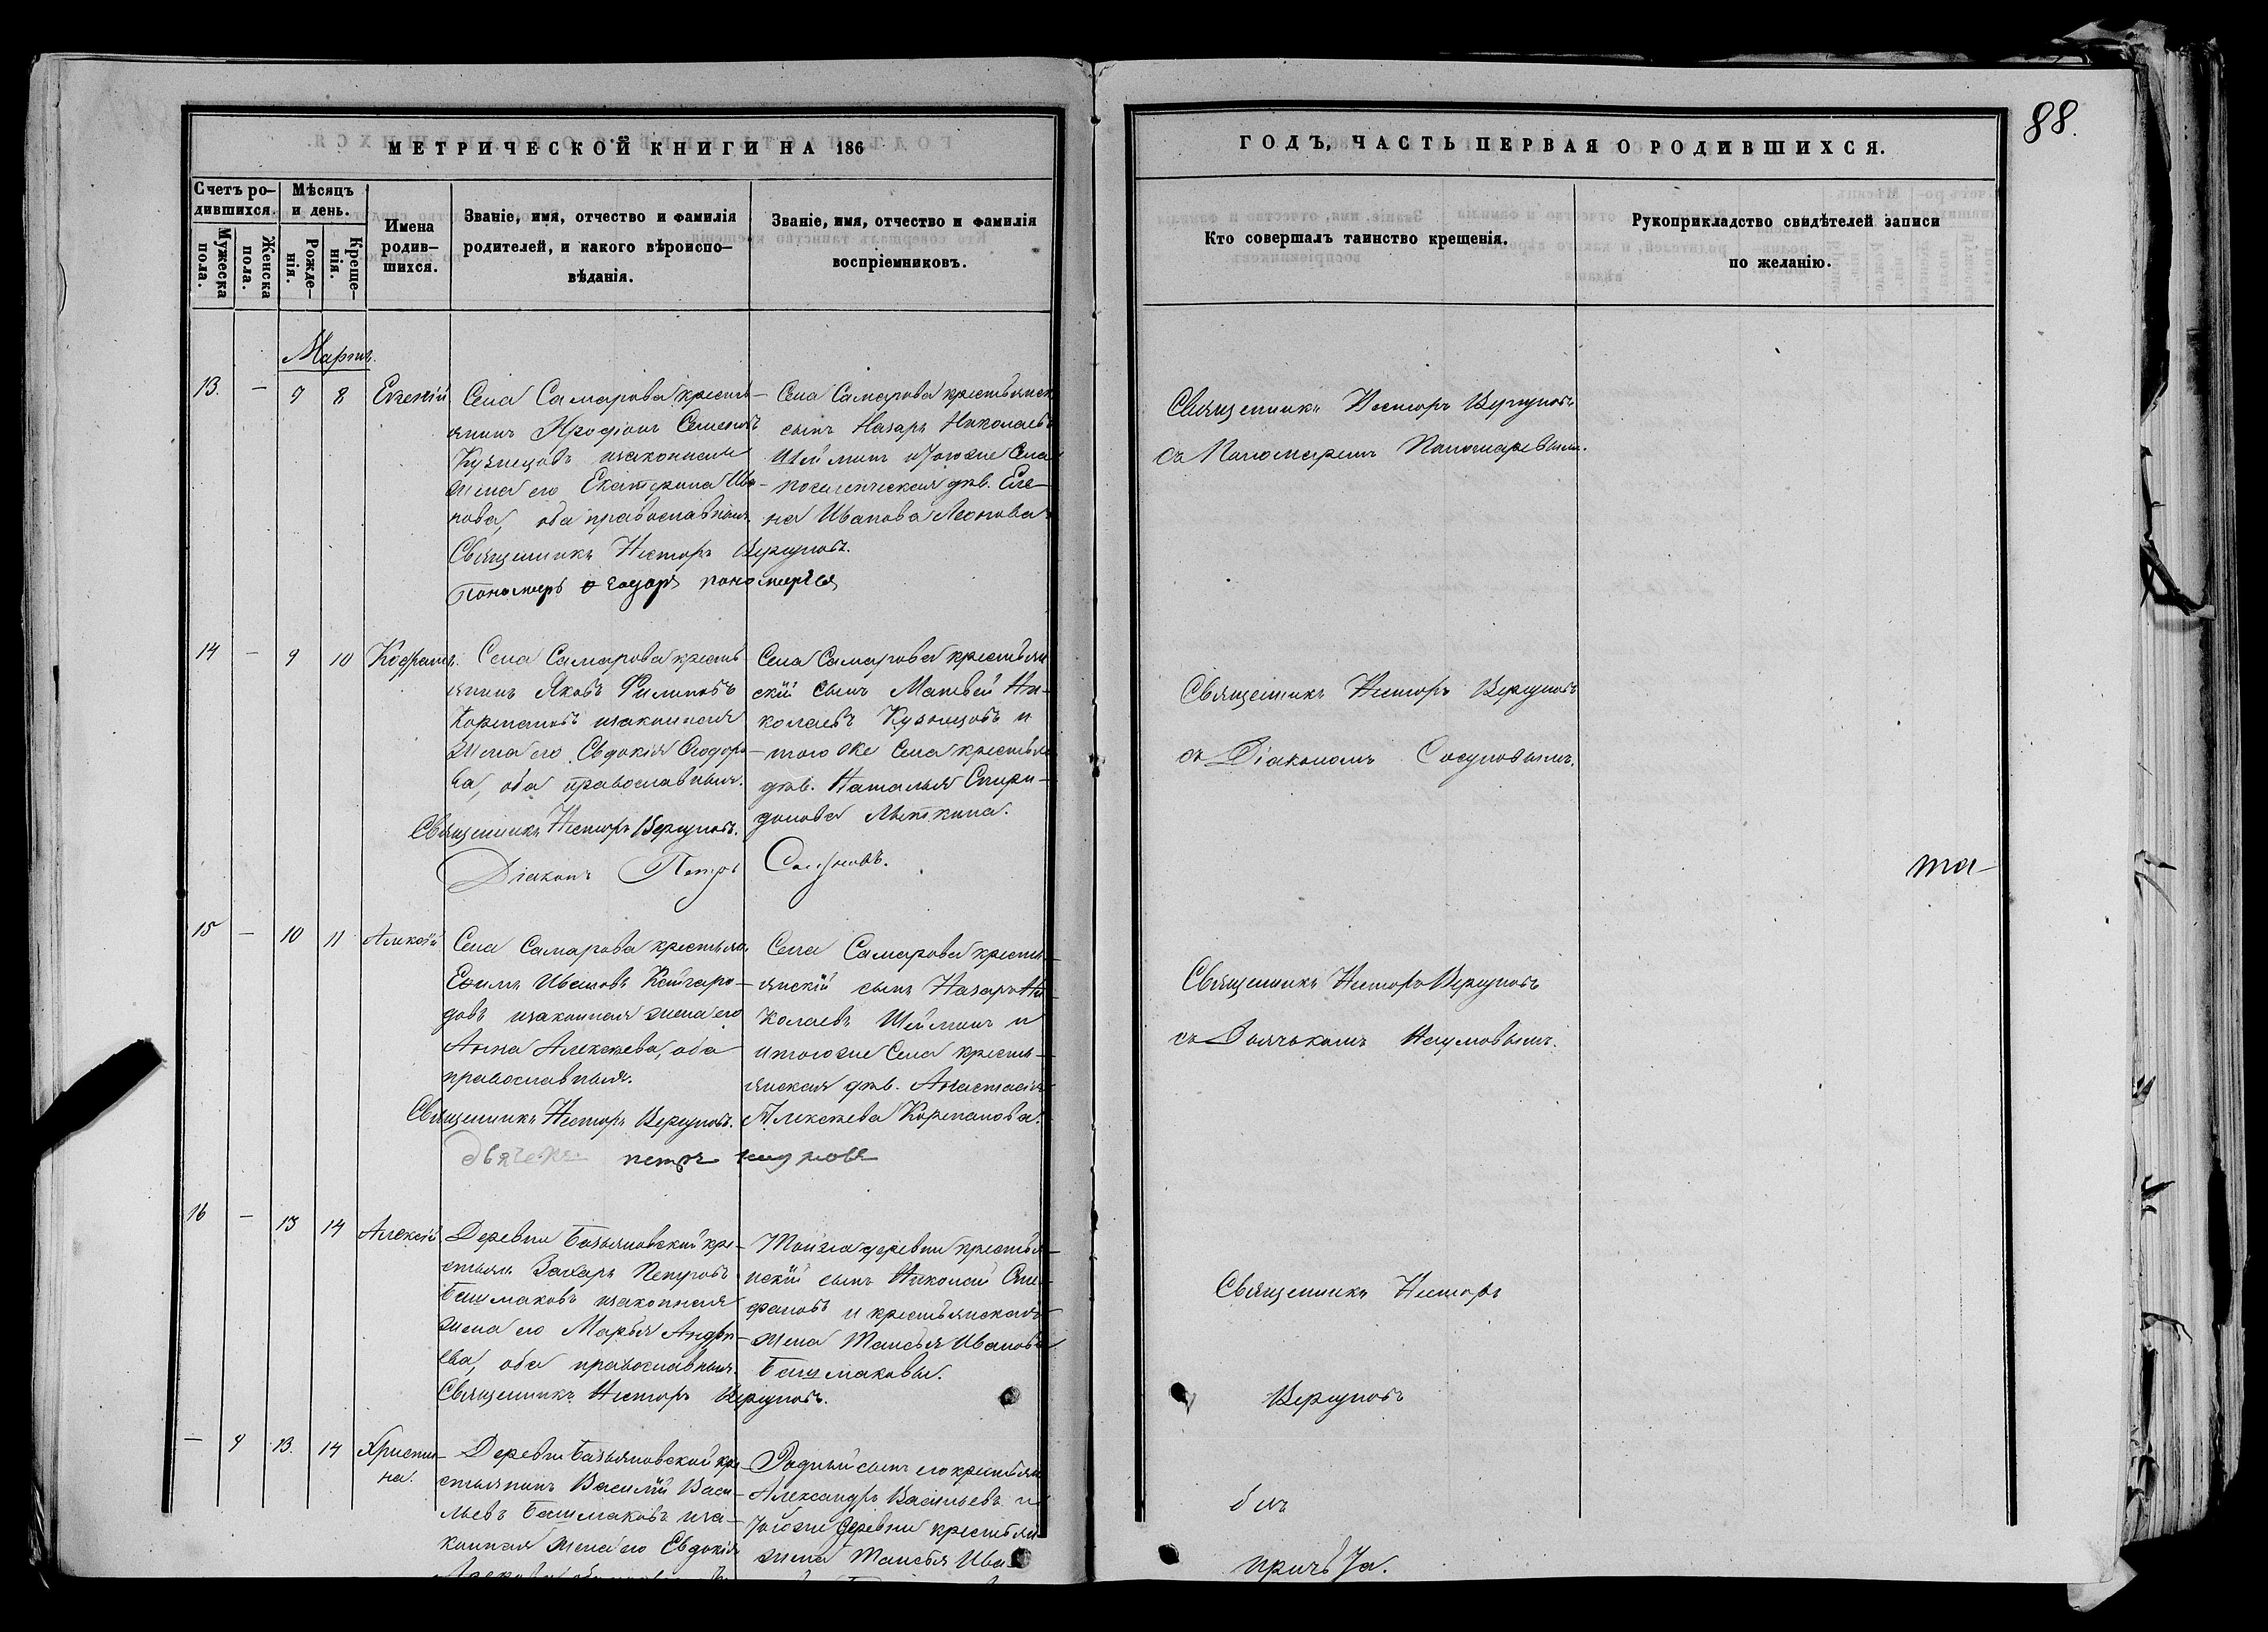 МЕТРИЧЕСКОЙ КНИГИ НА 186
ГОДЪ, ЧАСТЬ ПЕРВАЯ О РОДИВШИХСЯ.
88.
Счетъ ро-
дившихся.
Мужеска
пола.
Женска
пола.
Мѣсяцъ
и день.
Рожде-
нія.
Креще-
нія.
Имена
родив-
шихся.
Званіе, имя, отчество и фамилія
родителей, и какого вѣроиспо-
вѣданія.
Званіе, имя, отчество и фамилія
воспріемниковъ.
Кто совершалъ таинство крещенія.
Рукоприкладство свидѣтелей записи
по желанію.
Мартъ.
13. - 9 8 Евгеній
Села Самарова кресть-
янинъ Семеновъ
Кузнецовъ изаконная
жена его Екатерина Ива-
нова, оба православныя.
Священникъ Несторъ Вергуновъ.
Пономаръ
Села Самарова крестьянск
сынъ Назаръ Николаевъ
Шеймин итогоже Села
дѣв. Еле-
на Иванова
Священникъ Несторъ Вергуновъ
съ Пономаремъ Пономаревымъ.
14 - 9 10 Кодратъ.
Села Самарова кресть
янинъ Яковъ Филиповъ
Корепановъ изаконная
жена его Евдокія Ѳеодоро-
ва, оба православныя.
Священникъ Несторъ Вергуновъ.
Діаконъ Петръ Сосуновъ.
Села Самарова крестьян
скій сынъ Матвей Ни-
колаевъ Кузнецовъ и
тогоже Села крестья
дѣв. Наталья Спири-
донова Мыткина.
Священникъ Несторъ Вергуновъ
съ Діакономъ Сосуновымъ.
та-
15 - 10 11 Алексѣй
Села Самарова крестьян.
Ефимъ Ивановъ Кайгаро-
довъ изаконная жена его
Анна Алексѣева, оба
православныя.
Священникъ Несторъ Вергуновъ.
дьячекъ петръ наумовъ
Села Самарова кресть-
янскій сынъ Назаръ Ни-
колаевъ Шеймин и
итогоже Села кресть-
янская дѣв. Анастасія
Алексѣева Корепанова.
Священникъ Несторъ Вергуновъ
съ Дьячькомъ Наумовымъ.
16 - 13 14 Алексѣй
Деревни Базьяновской кре-
стьян. Захаръ Петровъ
Башмаковъ изаконная
жена его Марья Андре-
ева, оба православныя.
Священникъ Несторъ Вергуновъ.
Тойже деревни крестья-
нскій сынъ Николай
и крестьянская
жена Таисья Иванова
Башмаковы.
Священникъ Несторъ
Вергуновъ
- 9 13. 14 Христи-
на.
Деревни Базьяновской кре
стьянинъ Василій Васи-
льевъ Башмаковъ иза-
конная жена его Евдокія
Родный сынъ его крестьян
Александръ Васильевъ и
тойже деревни крестьян
жена Таисья Ива-
безъ
причта.